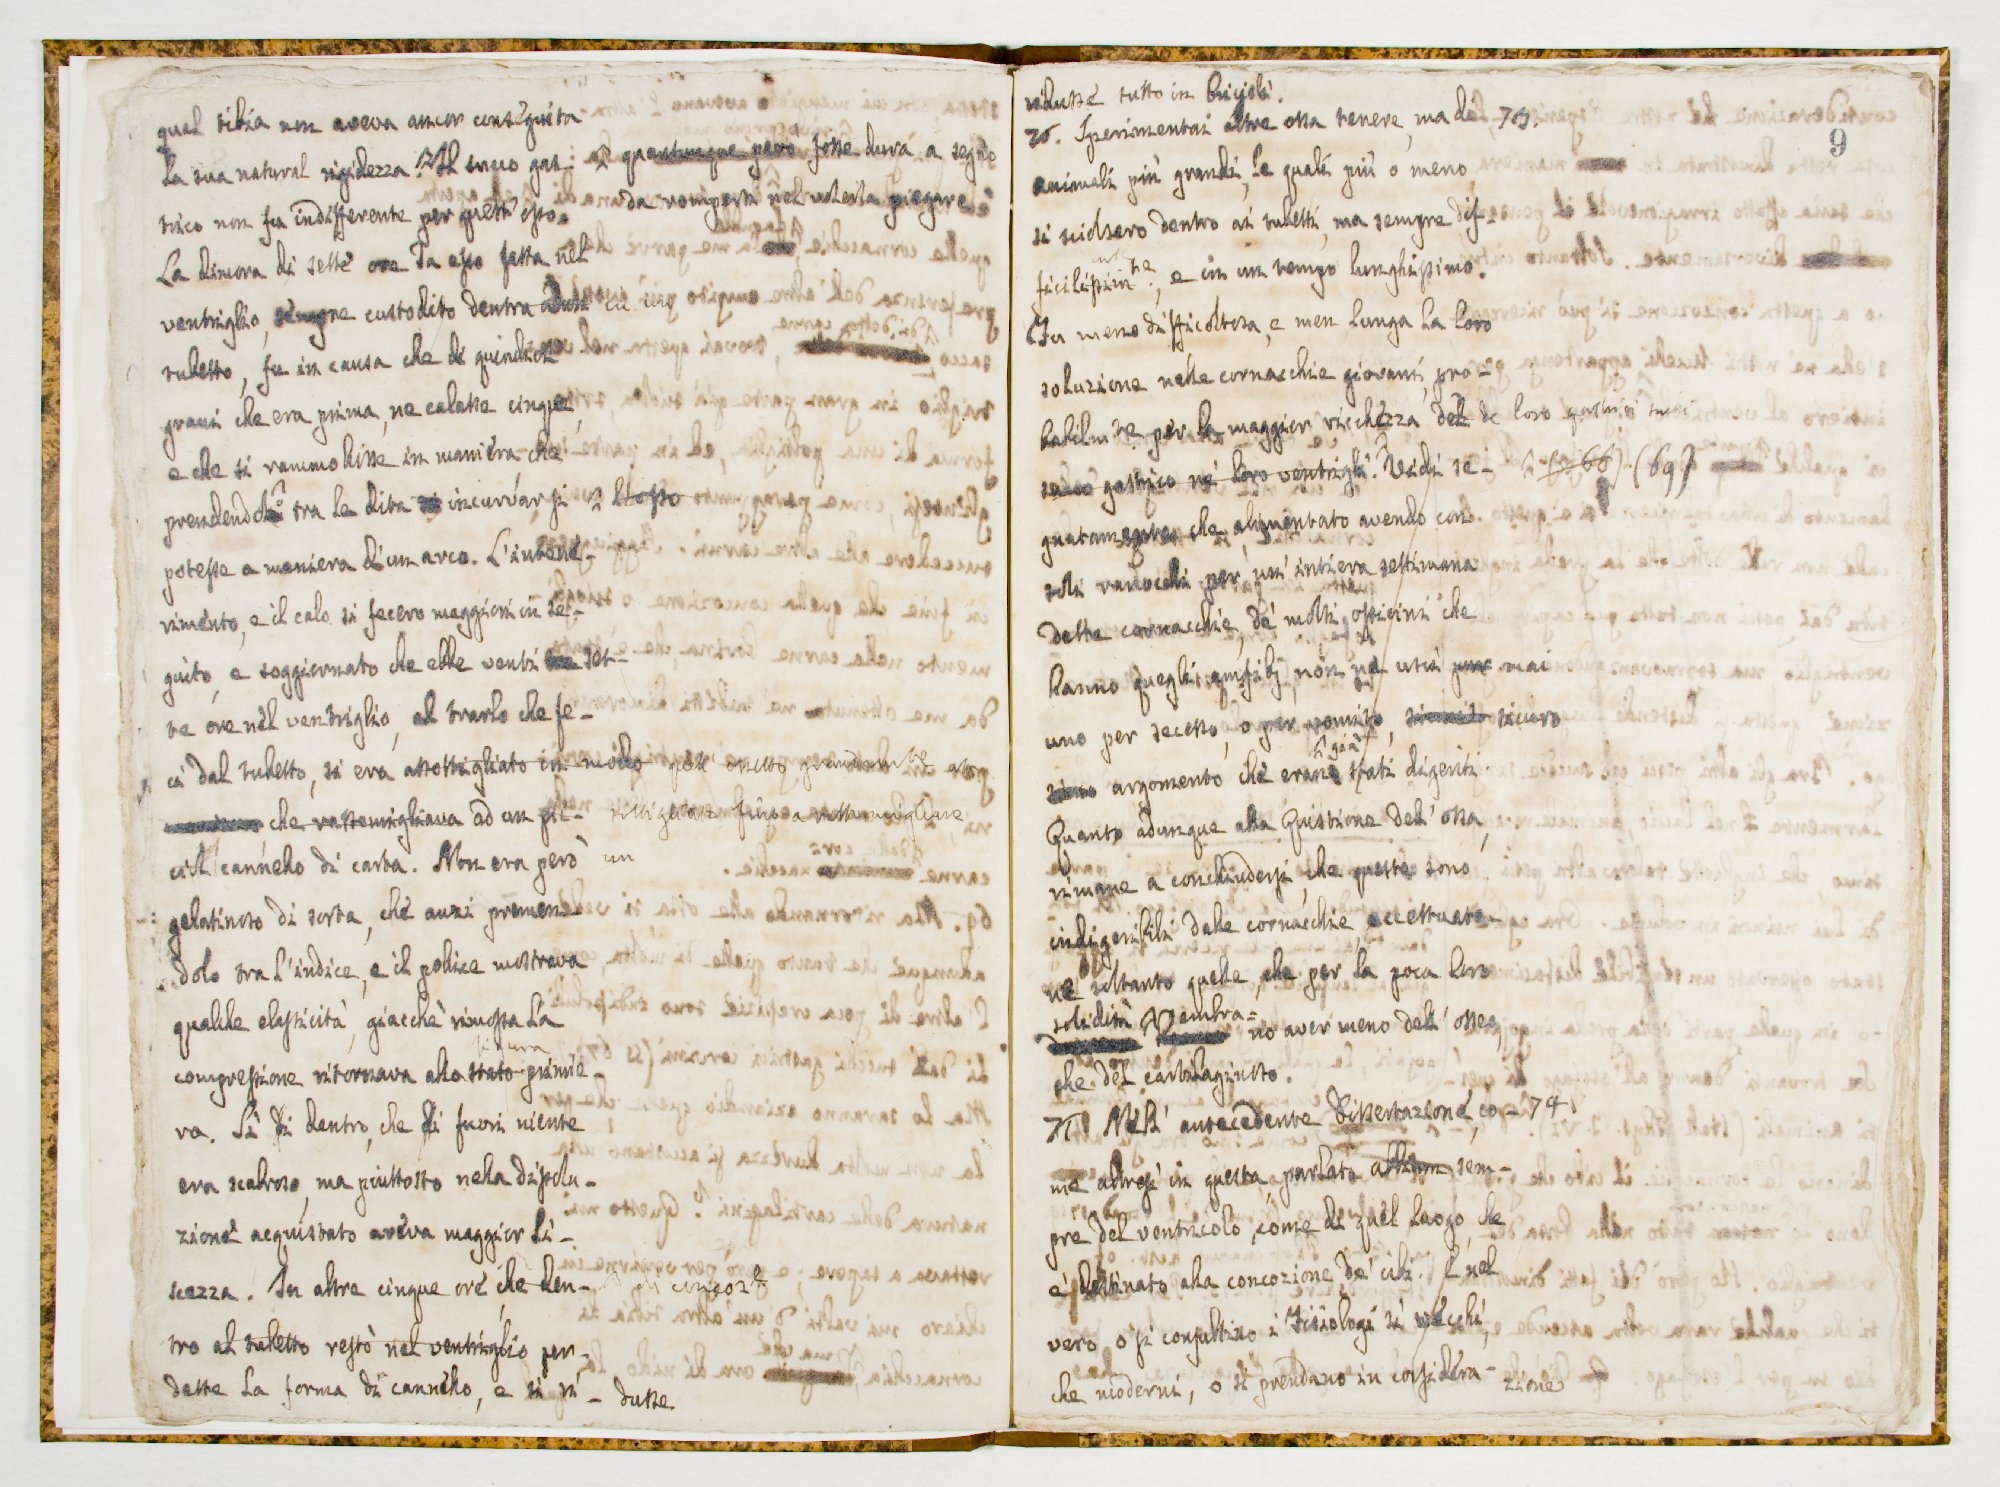 quel tibia non aveva ancor conseguita
la sua natural rigidezza. Il succo gas-
quantunque però fosse dura a segno
da romperti nel volerla piegare
trico non fu indifferente per quest' osso.
La dimora di sette ore da esso fatta nel
ventriglio, sempre custodito dentro al
tubetto, fu in causa che di quindici
grani che era prima, ne calasse cinque,
e che si rammollisse in maniera che
prendendolo tra le dita incurvar si
potesse a maniera d'un arco. L'intene-
rimento, e il calo si fecero maggiori in se-
guito, e soggiornato che ebbe venti set-
te ore nel ventriglio, al trarlo che fe-
ci dal tubetto, si era assottigliato in modo
che rassomigliava ad un pic-
fino a rassomigliare
ciol cannello di carta. Non era però
un
gelatinoso di sorta, che anzi premen-
dolo tra l'indice, e il pollice mostrava
qualche elasticità, giacchè rimossa la
compressione ritornava allo stato primie-
va. Sì di dentro, che di fuori niente
era scabroso, ma piuttosto nella dissolu-
zione acquistato aveva maggior li-
scezza. In altre cinque ore, che den-
tro al tubetto restò nel ventriglio per-
dette la forma di cannello, e si ri-
dusse
9
ridusse tutto in briccioli.
70. Sperimentai altre ossa tenere, ma di
73.
animali più grandi, le quali più o meno
si sciolsero dentro ai tubetti, ma sempre dif-
ficilissimte, e in un tempo lunghissimo.
Fu meno difficoltosa, e men lunga la loro
soluzione nelle cornacchie giovani, pro-
babilmte per la maggior ricchezza del
de loro gastrici succhi
succo gastrico ne' loro ventrigli. Vidi se-
(69)
gnatamente che alimentato avendo con
soli ranocchi per un' intiera settimana
delle cornacchie, de' molti ossicini che
hanno quegli amfibj, non ne uscì mai
uno per secesso, o per vomito, sicuro
già
argomento che erano stati digeriti.
Quanto adunque alla Quistione dell' ossa,
rimane a conchiudersi, che queste sono
indigeribili dalle cornacchie, eccettuato-
ne soltanto quelle, che per la poca loro
solidità sembra-
no aver meno dell' osseo,
che del cartilaginoso.
71. Nell' antecedente Dissertazione, co-
74.
me altresì in questa, parlato abbiam sem-
pre del ventricolo, come di quel luogo, che
è destinato alla concozione de' cibi. E nel
vero o si consultino i Fisiologi sì vecchi,
che moderni, o si prendano in considera-
zione